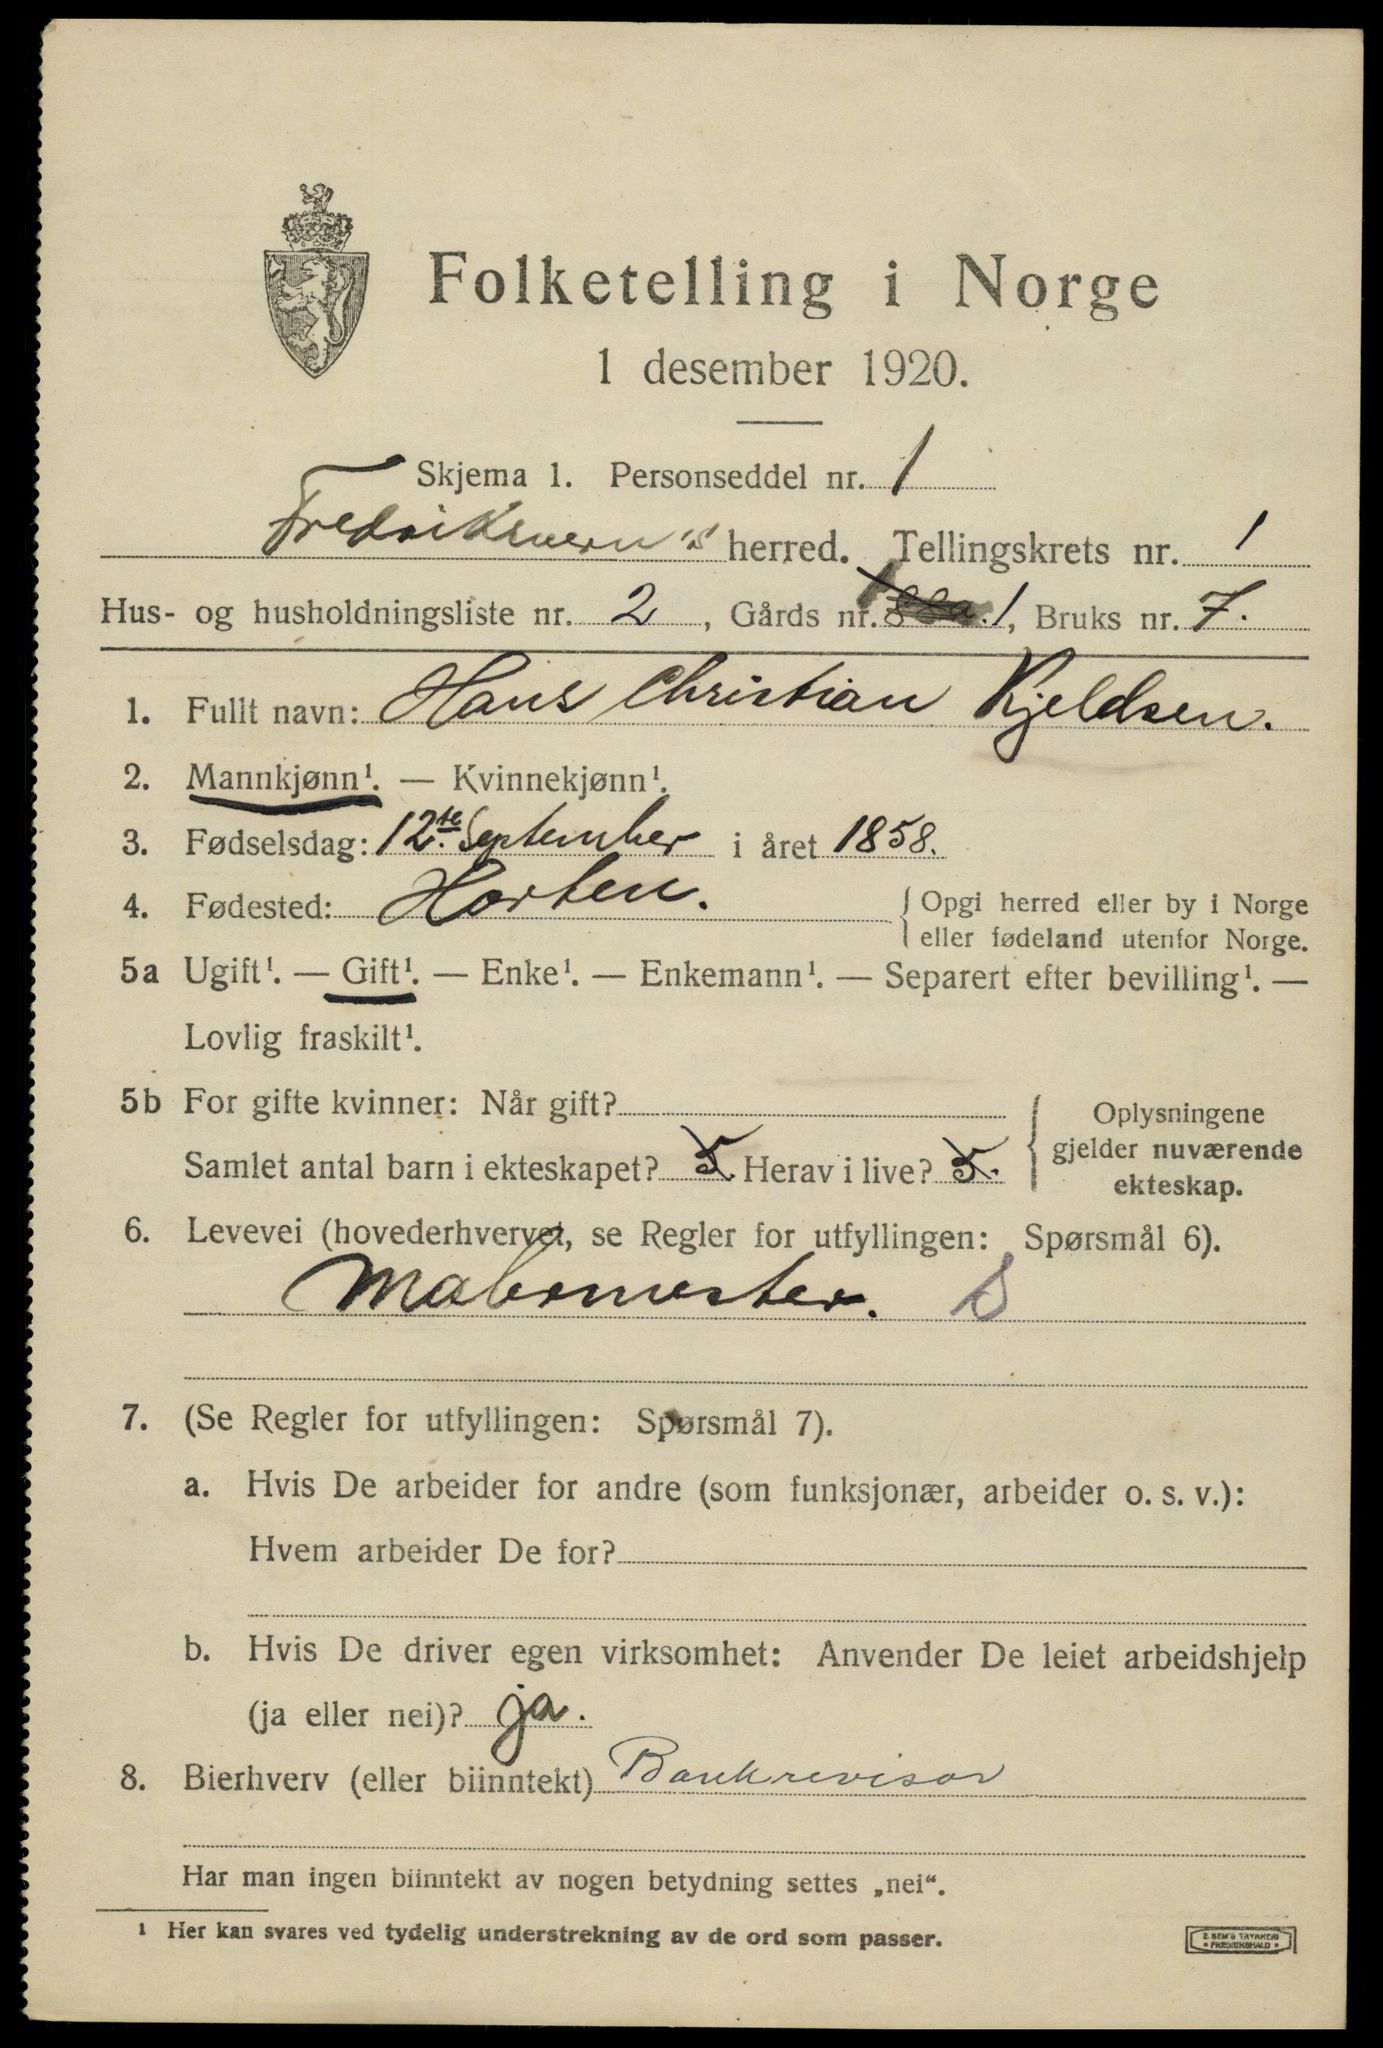 Folketelling i Norge
1 desember 1920.
Skjema 1. Personseddel nr. 1
Fredriksvern's herred. Tellingskrets nr. 1
Hus- og husholdningsliste nr. 2, Gårds nr. 1, Bruks nr. 7.
1. Fullt navn: Hans Christian Kjeldsen.
2. Mannkjønn¹. — Kvinnekjønn¹.
3. Fødselsdag: 12te September i året 1858.
4. Fødested: Horten. { Opgi herred eller by i Norge
eller fødeland utenfor Norge.
5a Ugift¹. — Gift¹. — Enke¹. — Enkemann¹. — Separert efter bevilling¹. —
Lovlig fraskilt¹.
5b For gifte kvinner: Når gift?
Samlet antal barn i ekteskapet? 5 Herav i live? 5.
{ Oplysningene
gjelder nuværende
ekteskap.
6. Levevei (hovederhvervet, se Regler for utfyllingen: Spørsmål 6).
Malermester. S
7. (Se Regler for utfyllingen: Spørsmål 7).
a. Hvis De arbeider for andre (som funksjonær, arbeider o. s. v.):
Hvem arbeider De for?
b. Hvis De driver egen virksomhet: Anvender De leiet arbeidshjelp
(ja eller nei)? ja.
8. Bierhverv (eller biinntekt) Bankrevisor
Har man ingen biinntekt av nogen betydning settes „nei“.
¹ Her kan svares ved tydelig understrekning av de ord som passer.
E. SEM'S TRYKKERI
• FREDRIKSHALD •